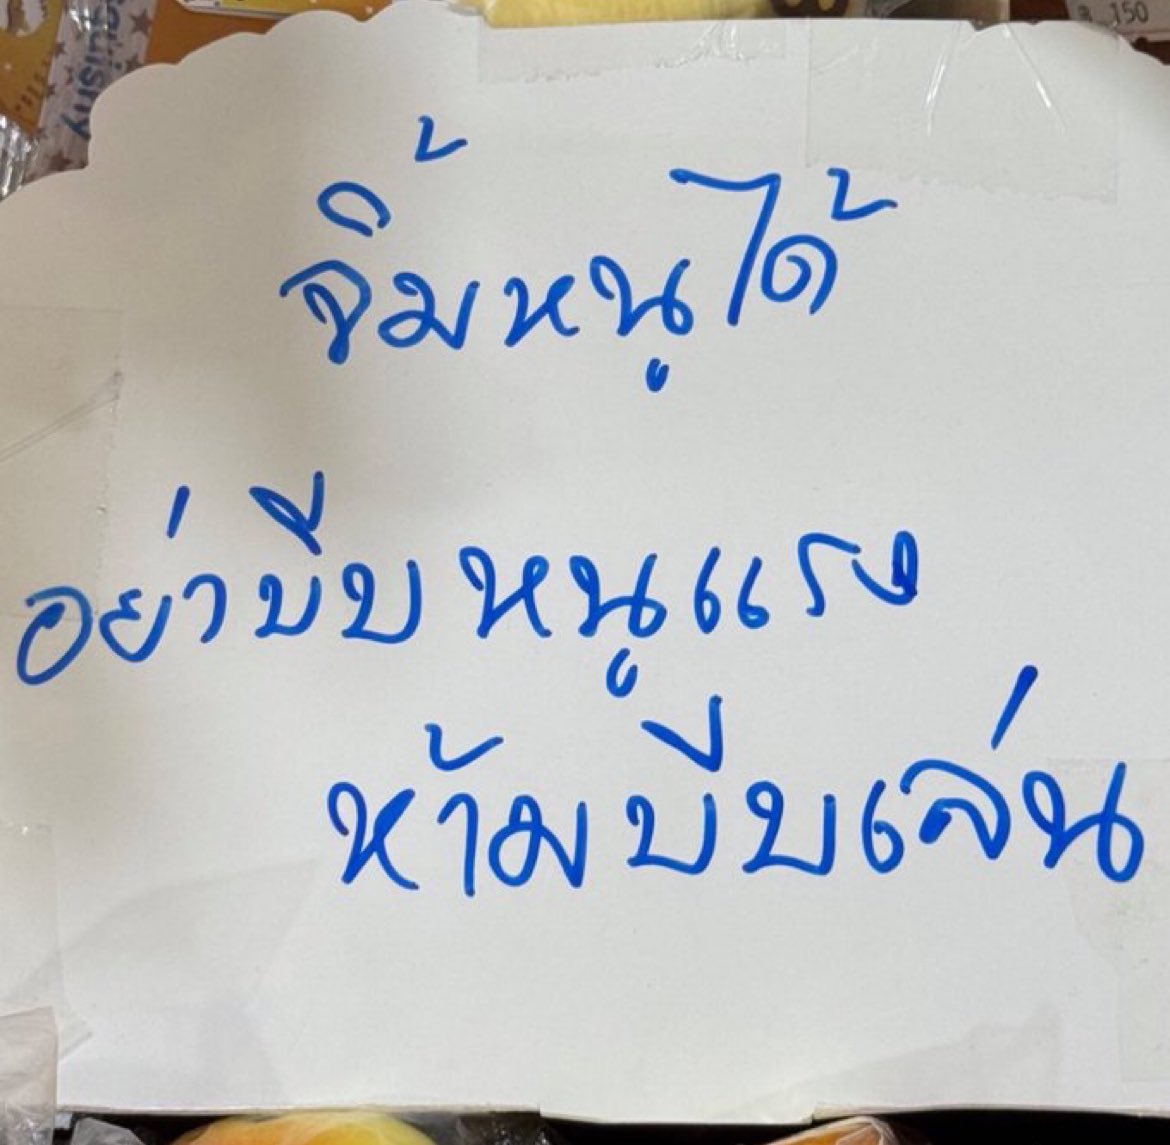 squishy
฿ 150
จิ้มหนูได้
อย่าบีบหนูแรง
ห้ามบีบเล่น